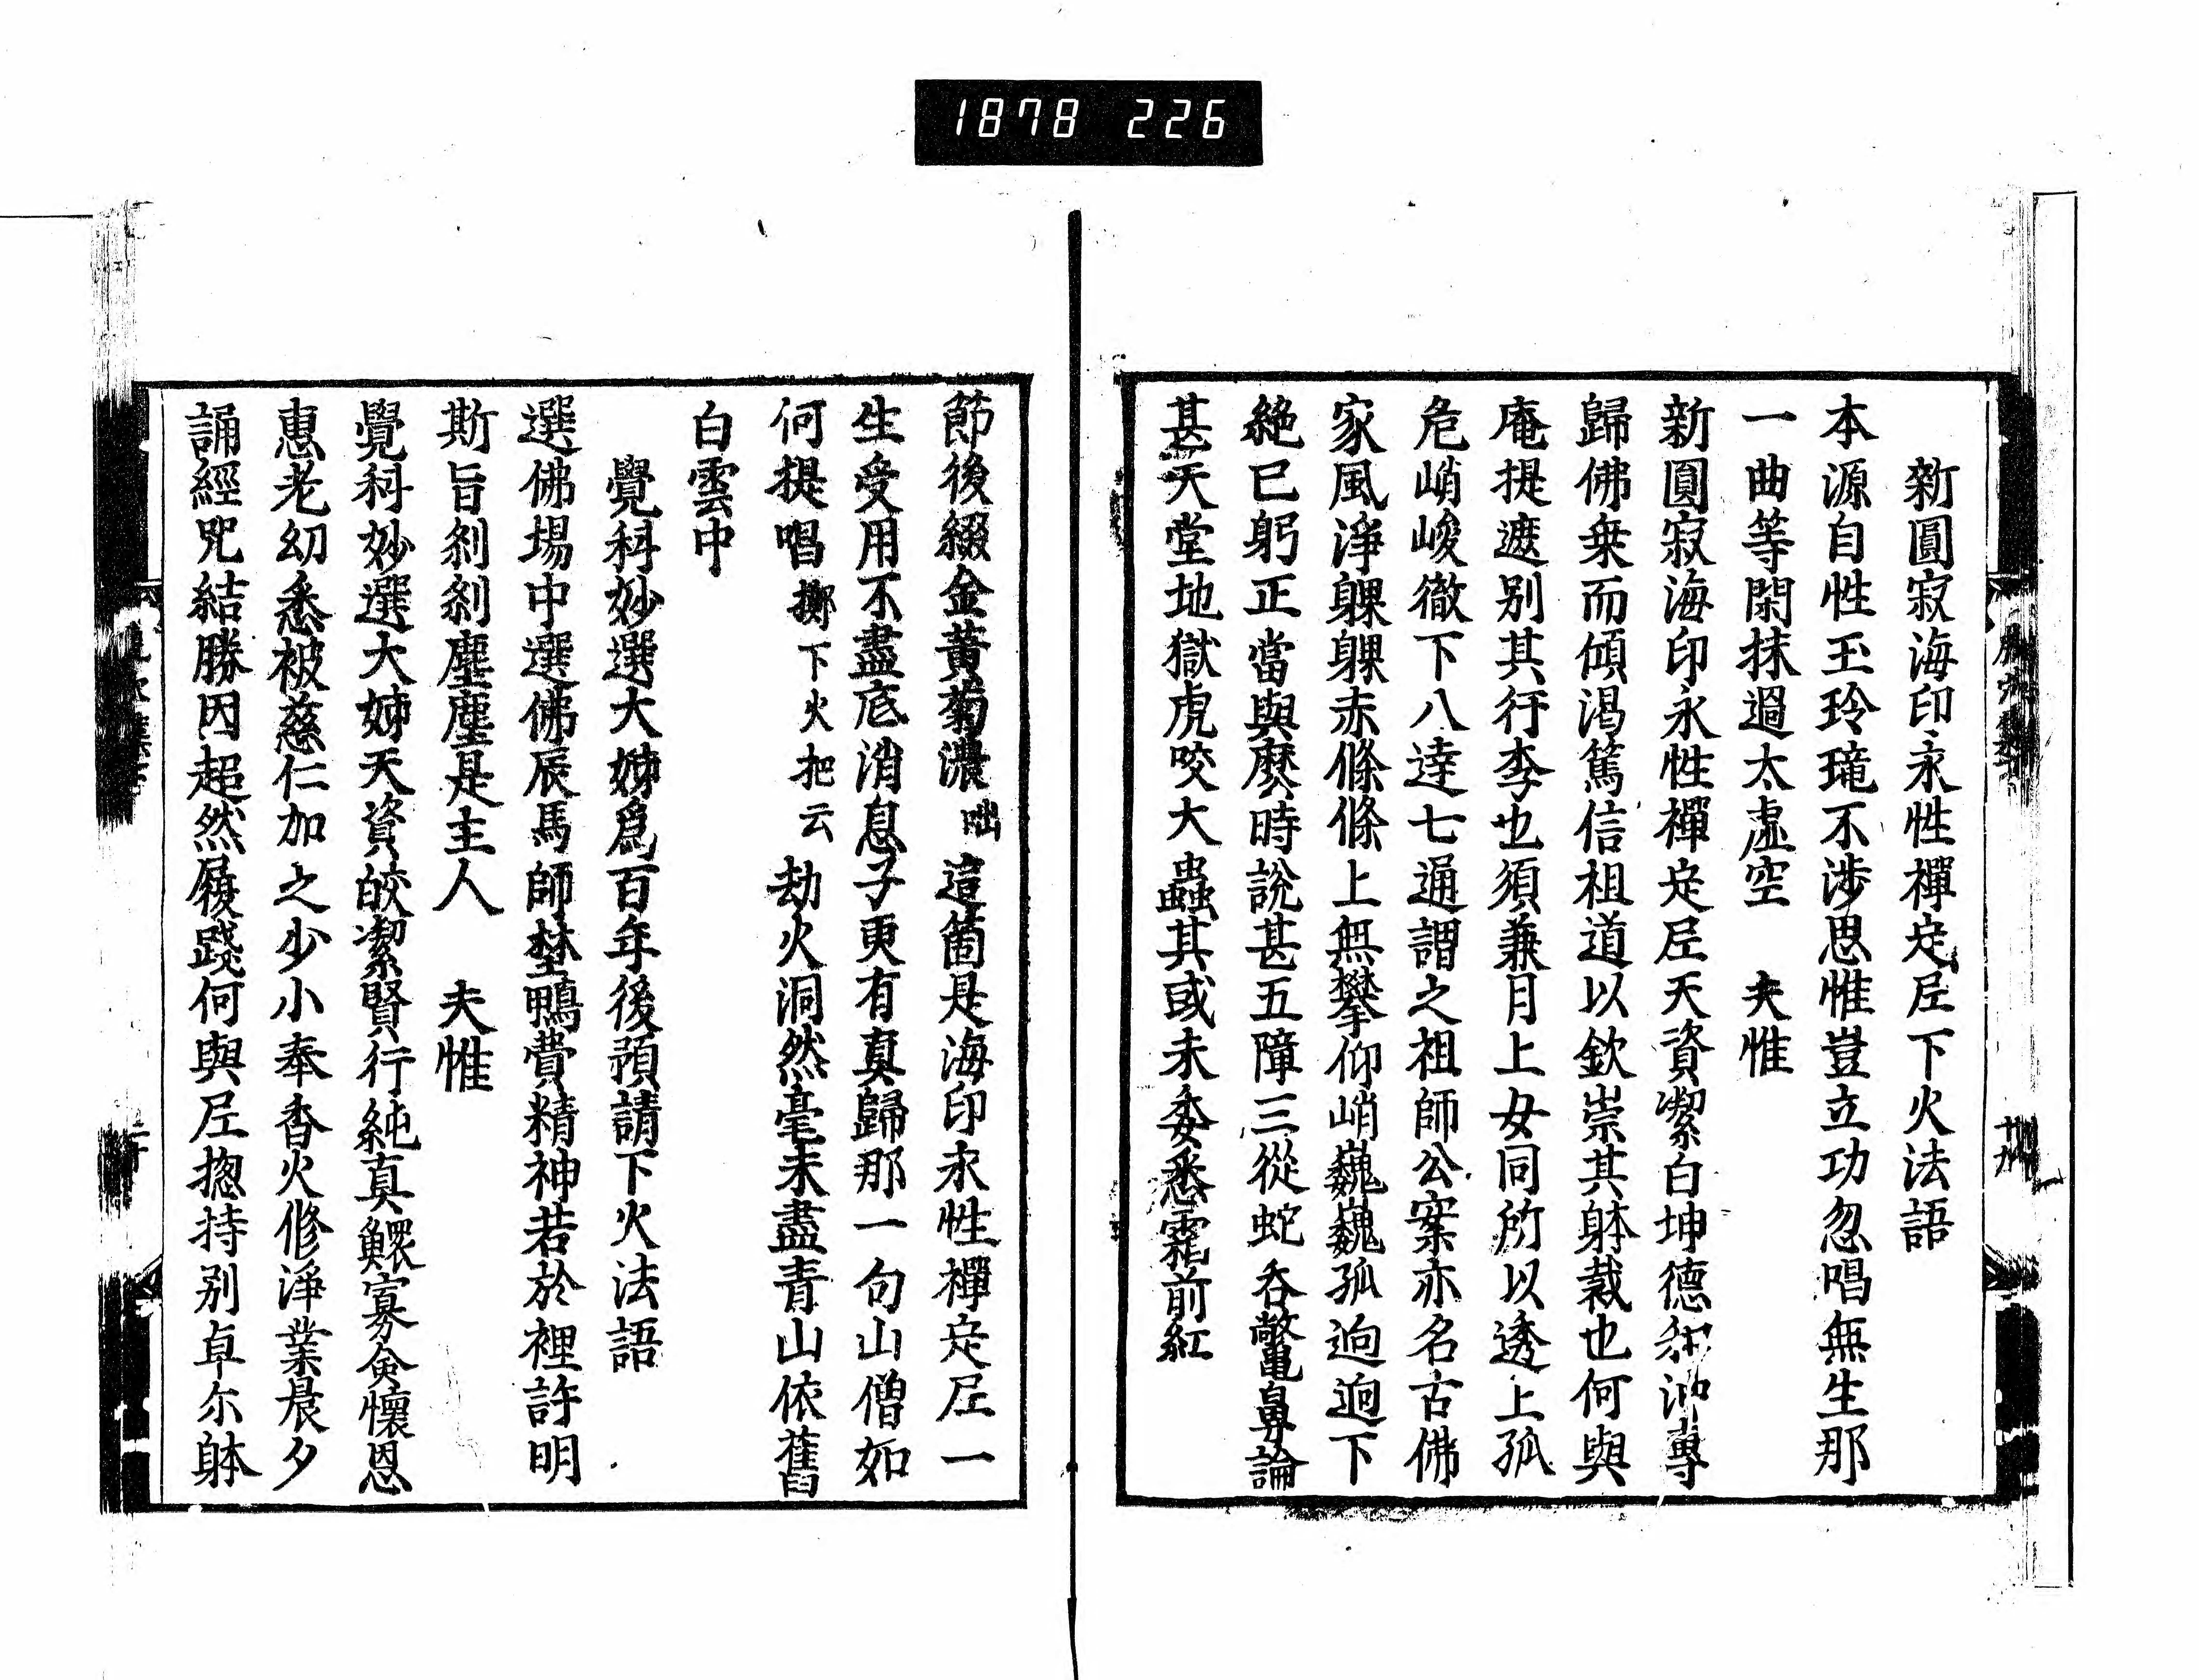 1878 226
新圓寂海印永性禪㝎尼下火法語
本源自性玉玲瓏不涉思惟豈立功忽唱無生那
一曲等閑抹過太虛空　夫惟
新圓寂海印永性禪㝎尼天資潔白坤德和沖專
歸佛乗而傾渴篤信祖道以欽崇其躰裁也何與
庵提遮别其行李也須兼月上女同所以透上孤
危峭峻徹下八達七通謂之祖師公案亦名古佛
家風淨躶躶赤條條上無攀仰峭巍巍孤逈逈下
絶已躬正當與麽時說甚五障三從蛇吞鼈鼻論
甚天堂地獄虎咬大蟲其或未委悉霜前紅
節後綴金黃菊濃咄這箇是海印永性禪㝎尼一
生受用不盡底消息子更有真歸那一句山僧如
何提唱擲下火把云劫火洞然毫末盡青山依舊
白雲中
覺科妙選大姊爲百年後預請下火法語
選佛場中選佛辰馬師埜鴨費精神若於裡許明
斯旨剎剎塵塵是主人　夫惟
覺科妙選大姊天資皎潔賢行純真鰥寡僉懷恩
惠老幼悉被慈仁加之少小奉香火修淨業晨夕
誦經咒結勝因超然履踐何與尼揔持别卓尔躰